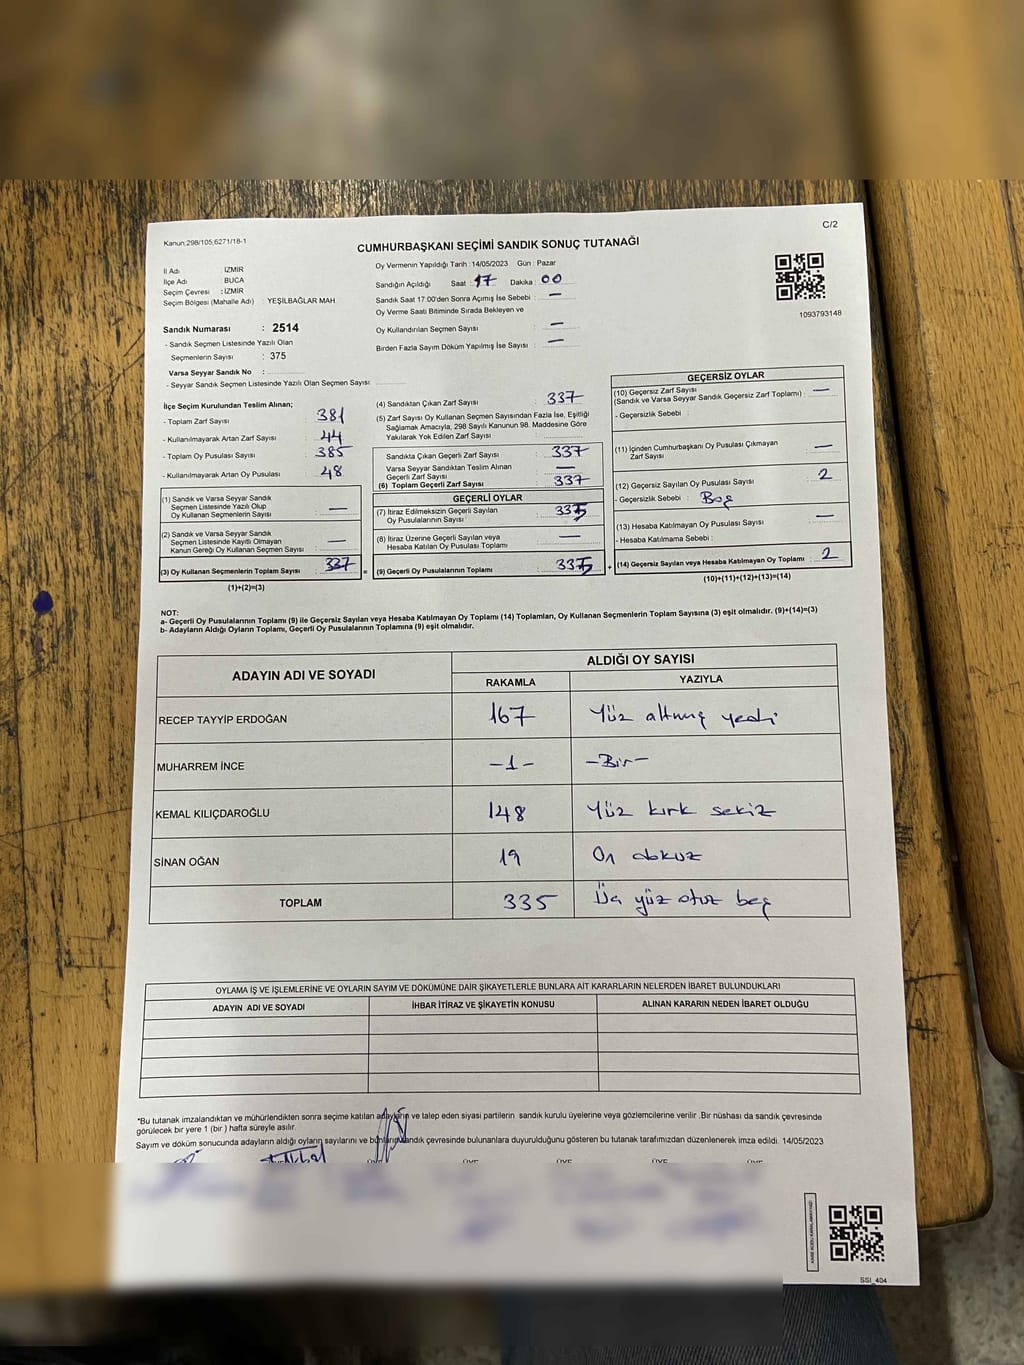 C/2
Kanun;298/105,6271/18-1
CUMHURBAŞKANI SEÇİMİ SANDIK SONUÇ TUTANAĞI
İl Adı İZMİR
İlçe Adı BUCA
Seçim Çevresi : İZMİR
Seçim Bölgesi (Mahalle Adı) : YEŞİLBAĞLAR MAH
Sandık Numarası : 2514
- Sandık Seçmen Listesinde Yazılı Olan
Seçmenlerin Sayısı : 375
Varsa Seyyar Sandık No :
- Seyyar Sandık Seçmen Listesinde Yazılı Olan Seçmen Sayısı :
Oy Vermenin Yapıldığı Tarih : 14/05/2023 Gün : Pazar
Sandığın Açıldığı Saat : 17 Dakika : 00
Sandık Saat 17:00'den Sonra Açımış İse Sebebi : —
Oy Verme Saati Bitiminde Sırada Bekleyen ve
Oy Kullandırılan Seçmen Sayısı : —
Birden Fazla Sayım Döküm Yapılmış İse Sayısı : —
1093793148
İlçe Seçim Kurulundan Teslim Alınan;
- Toplam Zarf Sayısı : 381
- Kullanılmayarak Artan Zarf Sayısı : 44
- Toplam Oy Pusulası Sayısı : 385
- Kullanılmayarak Artan Oy Pusulası : 48
(1) Sandık ve Varsa Seyyar Sandık
Seçmen Listesinde Yazılı Olup
Oy Kullanan Seçmenlerin Sayısı : —
(2) Sandık ve Varsa Seyyar Sandık
Seçmen Listesinde Kayıtlı Olmayan
Kanun Gereği Oy Kullanan Seçmen Sayısı : —
(3) Oy Kullanan Seçmenlerin Toplam Sayısı : 337
(1)+(2)=(3)
(4) Sandıktan Çıkan Zarf Sayısı : 337
(5) Zarf Sayısı Oy Kullanan Seçmen Sayısından Fazla İse, Eşitliği
Sağlamak Amacıyla, 298 Sayılı Kanunun 98. Maddesine Göre
Yakılarak Yok Edilen Zarf Sayısı :
Sandıkta Çıkan Geçerli Zarf Sayısı : 337
Varsa Seyyar Sandıktan Teslim Alınan
Geçerli Zarf Sayısı : —
(6) Toplam Geçerli Zarf Sayısı : 337
GEÇERLİ OYLAR
(7) İtiraz Edilmeksizin Geçerli Sayılan
Oy Pusulalarının Sayısı : 335
(8) İtiraz Üzerine Geçerli Sayılan veya
Hesaba Katılan Oy Pusulası Toplamı : —
(9) Geçerli Oy Pusulalarının Toplamı : 335
GEÇERSİZ OYLAR
(10) Geçersiz Zarf Sayısı
(Sandık ve Varsa Seyyar Sandık Geçersiz Zarf Toplamı) : —
- Geçersizlik Sebebi :
(11) İçinden Cumhurbaşkanı Oy Pusulası Çıkmayan
Zarf Sayısı : —
(12) Geçersiz Sayılan Oy Pusulası Sayısı : 2
- Geçersizlik Sebebi : Boş
(13) Hesaba Katılmayan Oy Pusulası Sayısı : —
- Hesaba Katılmama Sebebi :
(14) Geçersiz Sayılan veya Hesaba Katılmayan Oy Toplamı : 2
(10)+(11)+(12)+(13)=(14)
NOT:
a- Geçerli Oy Pusulalarının Toplamı (9) ile Geçersiz Sayılan veya Hesaba Katılmayan Oy Toplamı (14) Toplamları, Oy Kullanan Seçmenlerin Toplam Sayısına (3) eşit olmalıdır. (9)+(14)=(3)
b- Adayların Aldığı Oyların Toplamı, Geçerli Oy Pusulalarının Toplamına (9) eşit olmalıdır.
ADAYIN ADI VE SOYADI ALDIĞI OY SAYISI
RAKAMLA YAZIYLA
RECEP TAYYİP ERDOĞAN 167 Yüz altmış yedi
MUHARREM İNCE -1- -Bir-
KEMAL KILIÇDAROĞLU 148 Yüz kırk sekiz
SİNAN OĞAN 19 On dokuz
TOPLAM 335 Üç yüz otuz beş
OYLAMA İŞ VE İŞLEMLERİNE VE OYLARIN SAYIM VE DÖKÜMÜNE DAİR ŞİKAYETLERLE BUNLARA AİT KARARLARIN NELERDEN İBARET BULUNDUKLARI
ADAYIN ADI VE SOYADI İHBAR İTİRAZ VE ŞİKAYETİN KONUSU ALINAN KARARIN NEDEN İBARET OLDUĞU
*Bu tutanak imzalandıktan ve mühürlendikten sonra seçime katılan adayların ve talep eden siyasi partilerin sandık kurulu üyelerine veya gözlemcilerine verilir .Bir nüshası da sandık çevresinde
görülecek bir yere 1 (bir ) hafta süreyle asılır.
Sayım ve döküm sonucunda adayların aldığı oyların sayılarını ve bunların sandık çevresinde bulunanlara duyurulduğunu gösteren bu tutanak tarafımızdan düzenlenerek imza edildi. 14/05/2023
SSI_404